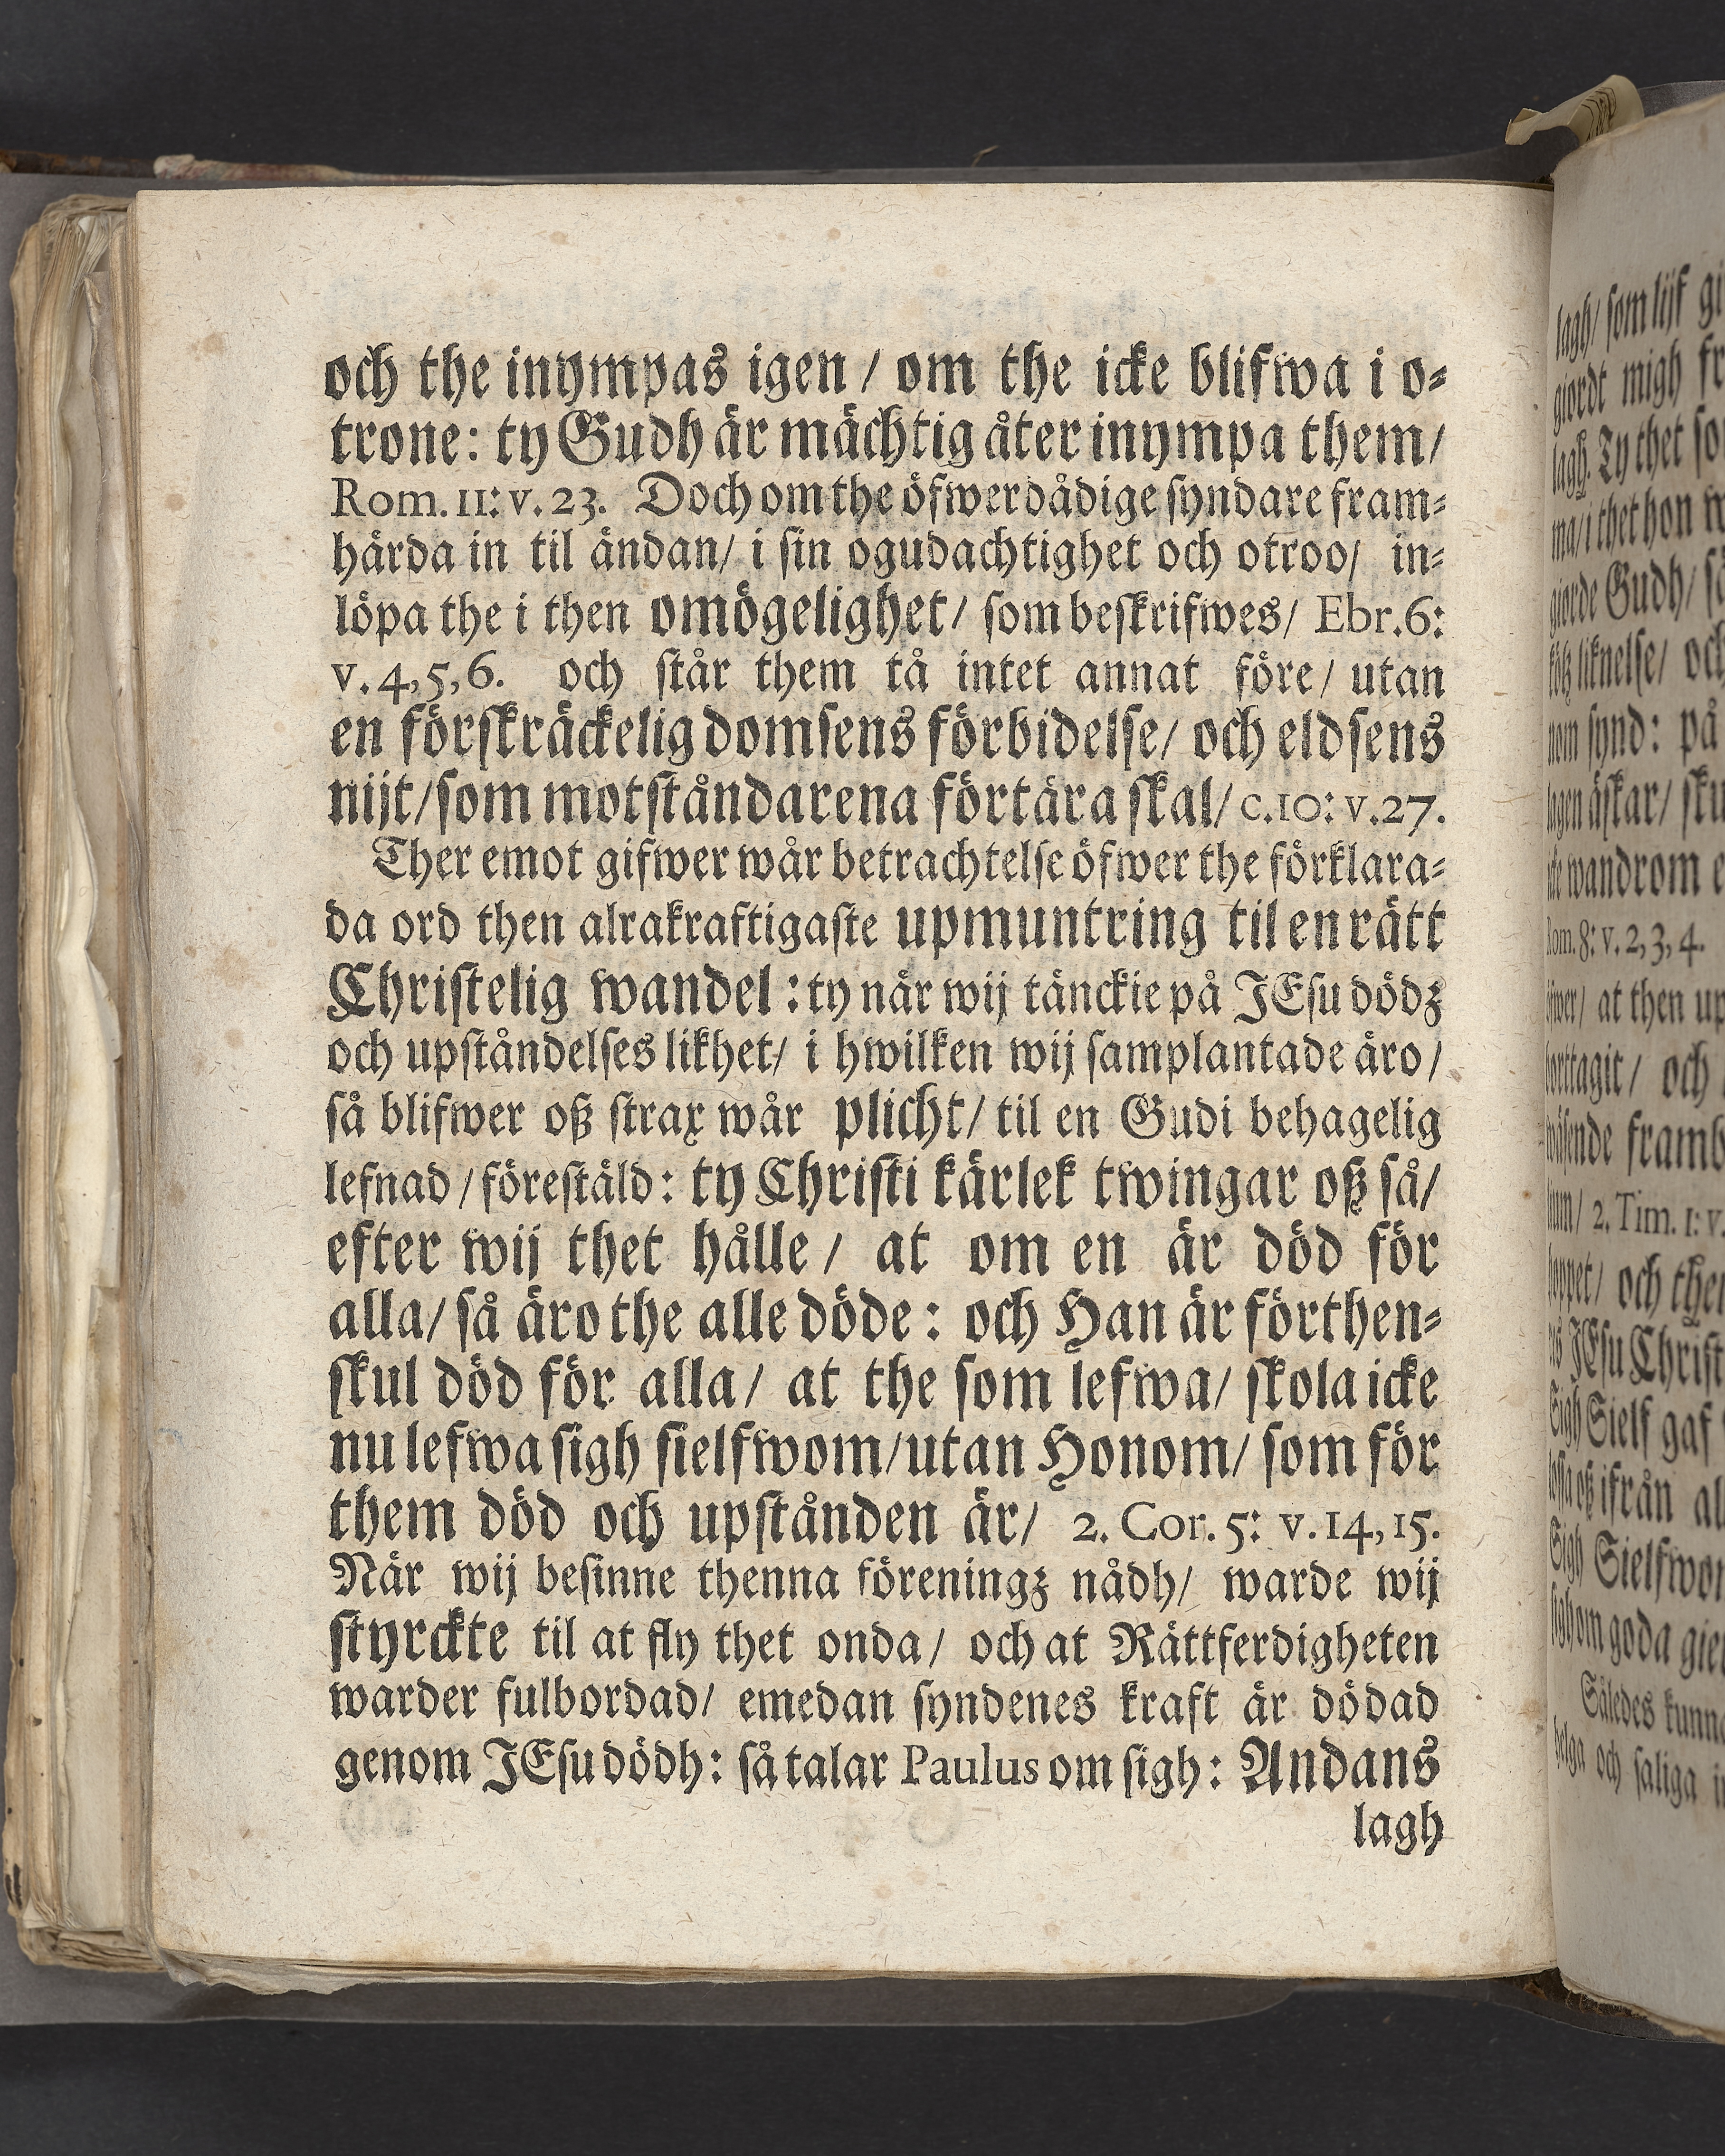 och the inympas igen / om the icke blifwa i o-
trone: ty Gudh är mächtig åter inympa them/
Rom. 11: v. 23. Doch om the öfwerdådige syndare fram-
härda in til ändan/ i sin ogudachtighet och otroo/ in-
löpa the i then omögelighet/ som beskrifwes/ Ebr. 6:
v. 4, 5, 6. och står them tå intet annat före/ utan
en förskräckelig domsens förbidelse/ och eldsens
nijt/ som motståndarena förtära skal/ c. 10: v. 27.
Ther emot gifwer wår betrachtelse öfwer the förklara-
da ord then alrakraftigaste upmuntring til en rätt
Christelig wandel: ty när wij tänckie på JEsu dödz
och upståndelses likhet/ i hwilken wij samplantade äro/
så blifwer oß strax wår plicht/ til en Gudi behagelig
lefnad / förestäld: ty Christi kärlek twingar oß så/
efter wij thet hålle / at om en är död för
alla/ så äro the alle döde: och Han är förthen-
skul död för alla/ at the som lefwa/ skola icke
nu lefwa sigh sielfwom/ utan Honom/ som för
them död och upstånden är/ 2. Cor. 5: v. 14, 15.
När wij besinne thenna föreningz nådh/ warde wij
styrckte til at fly thet onda/ och at Rättferdigheten
warder fulbordad/ emedan syndenes kraft är dödad
genom JEsu dödh: så talar Paulus om sigh: Andans
lagh
lagh/ som lijf
giordt migh
lagh. Ty thet
ma/ i thet hon
giorde Gudh/
liknelse/ och
synd: på
lagen äskar/
wandrom
Rom. 8: v. 2, 3, 4.
at then
borttagit/ och
2. Tim. 1: v.
och
JEsu
Sigh Sielf gaf
oß ifrån
Sigh
sigh om goda
Således
helga och saliga